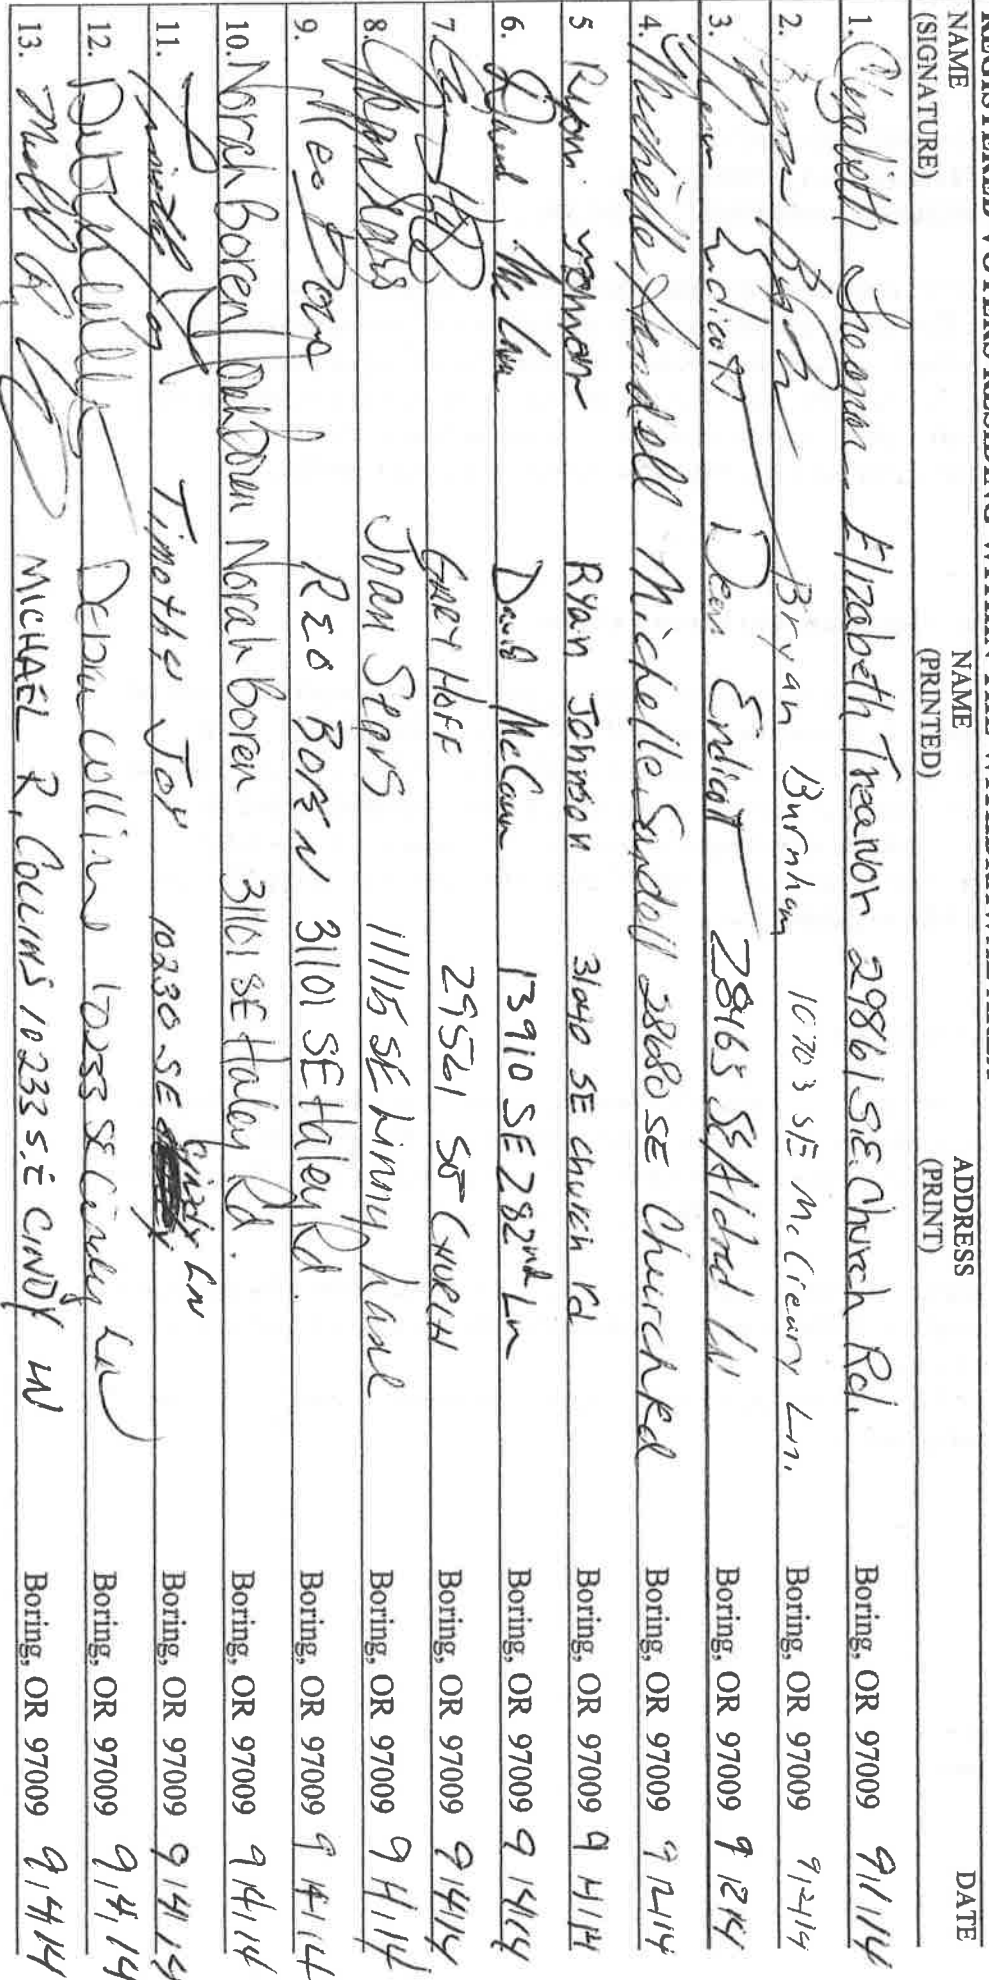 REGISTERED VOTERS RESIDING WITHIN THE
NAME NAME ADDRESS DATE
(SIGNATURE) (PRINTED) (PRINT)
1. Elizabeth Treanor Elizabeth Treanor 29861 S.E. Church Rd. Boring, OR 97009 9/1/14
2. Bryan Burnham 10703 SE McCreary Ln. Boring, OR 97009 9/2/14
3. Dean Endicott Dean Endicott 28165 SE Aldred Boring, OR 97009 9 12 14
4. Michelle Sundell Michelle Sundell 28680 SE Church Rd Boring, OR 97009 9/2/14
5 Ryan Johnson Ryan Johnson 31040 SE Church rd Boring, OR 97009 9/4/14
6. David McCann David McCann 13910 SE 282nd Ln Boring, OR 97009 9/4/14
7. GARY HOFF 29521 SE CHURCH Boring, OR 97009 9/4/14
8. Joan Stens 11115 SE Linny Lane Boring, OR 97009 9/4/14
9. REO BOREN 31101 SE Haley Rd. Boring, OR 97009 9/4/14
10. Norah boren Norah boren Norah boren 31101 SE Haley Rd. Boring, OR 97009 9/4/14
11. Timothy Joy 10230 SE Cindy LN Boring, OR 97009 9/4/14
12. Debra Collins 10233 SE Cindy Ln Boring, OR 97009 9/4/14
13. MICHAEL R. COLLINS 10233 S.E CINDY LN Boring, OR 97009 9/4/14